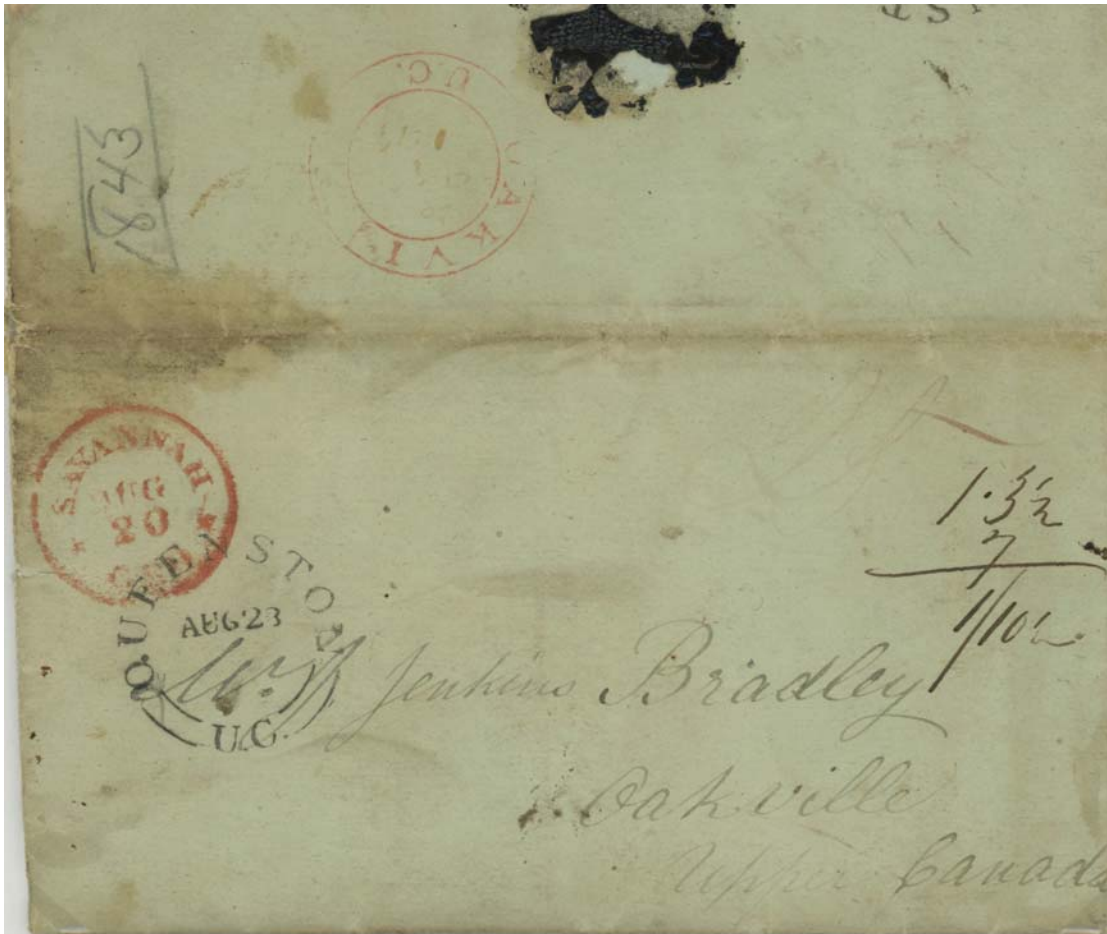 U.C.
OAKVI
1843
SAVANNAH
AUG
20
QUEENSTON
AUG 23
U.C.
1.3½
7
1/10½
Jenkins Bradley
Oakville
Upper Canada